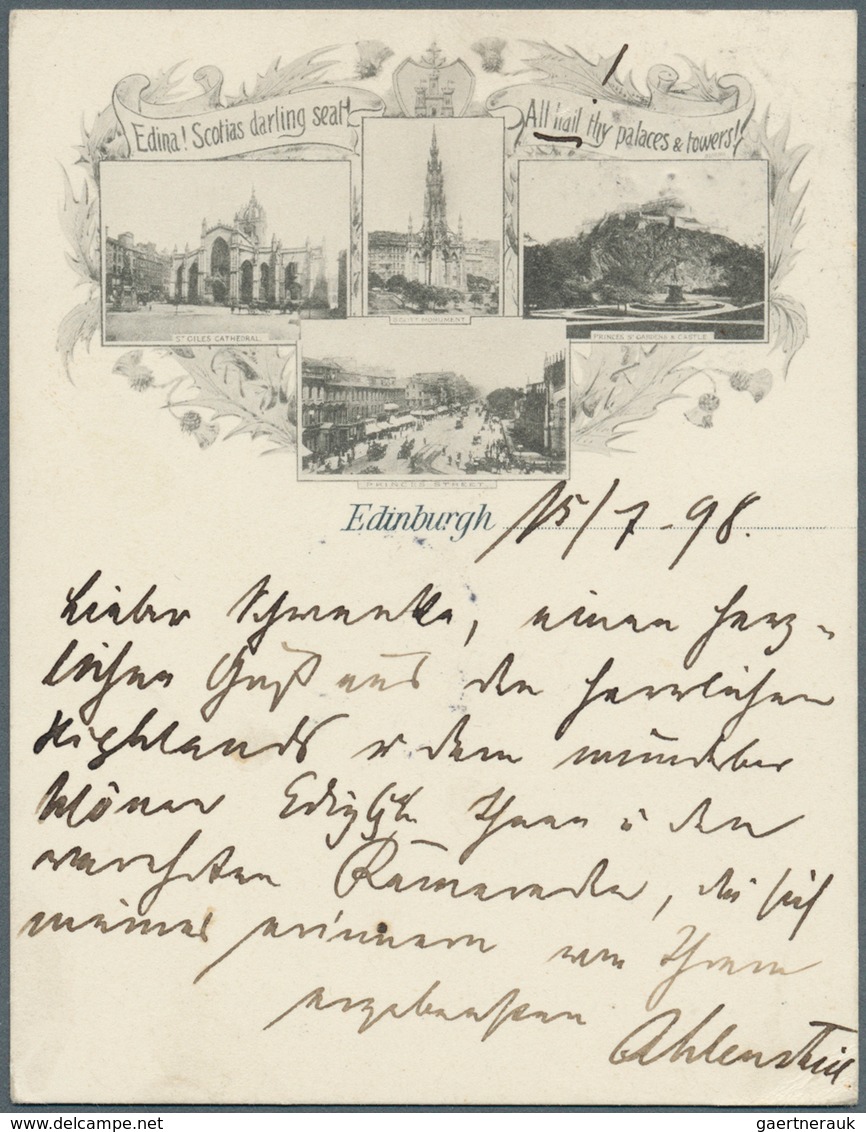 Edina! Scotias darling seat!
All hail thy palaces & towers!
ST GILES CATHEDRAL.
SCOTT MONUMENT.
PRINCES ST GARDENS & CASTLE.
PRINCES STREET.
Edinburgh 15/7-98.
Lieber Schwenke, einen herz-
lichen Gruß aus den herrlichen
Highlands u dem wunderbar
schönen Ihnen u den
verehrten Kameraden, die sich
meiner erinnern von Ihrem
ergebensten
gaertnerauk
delcampe.net